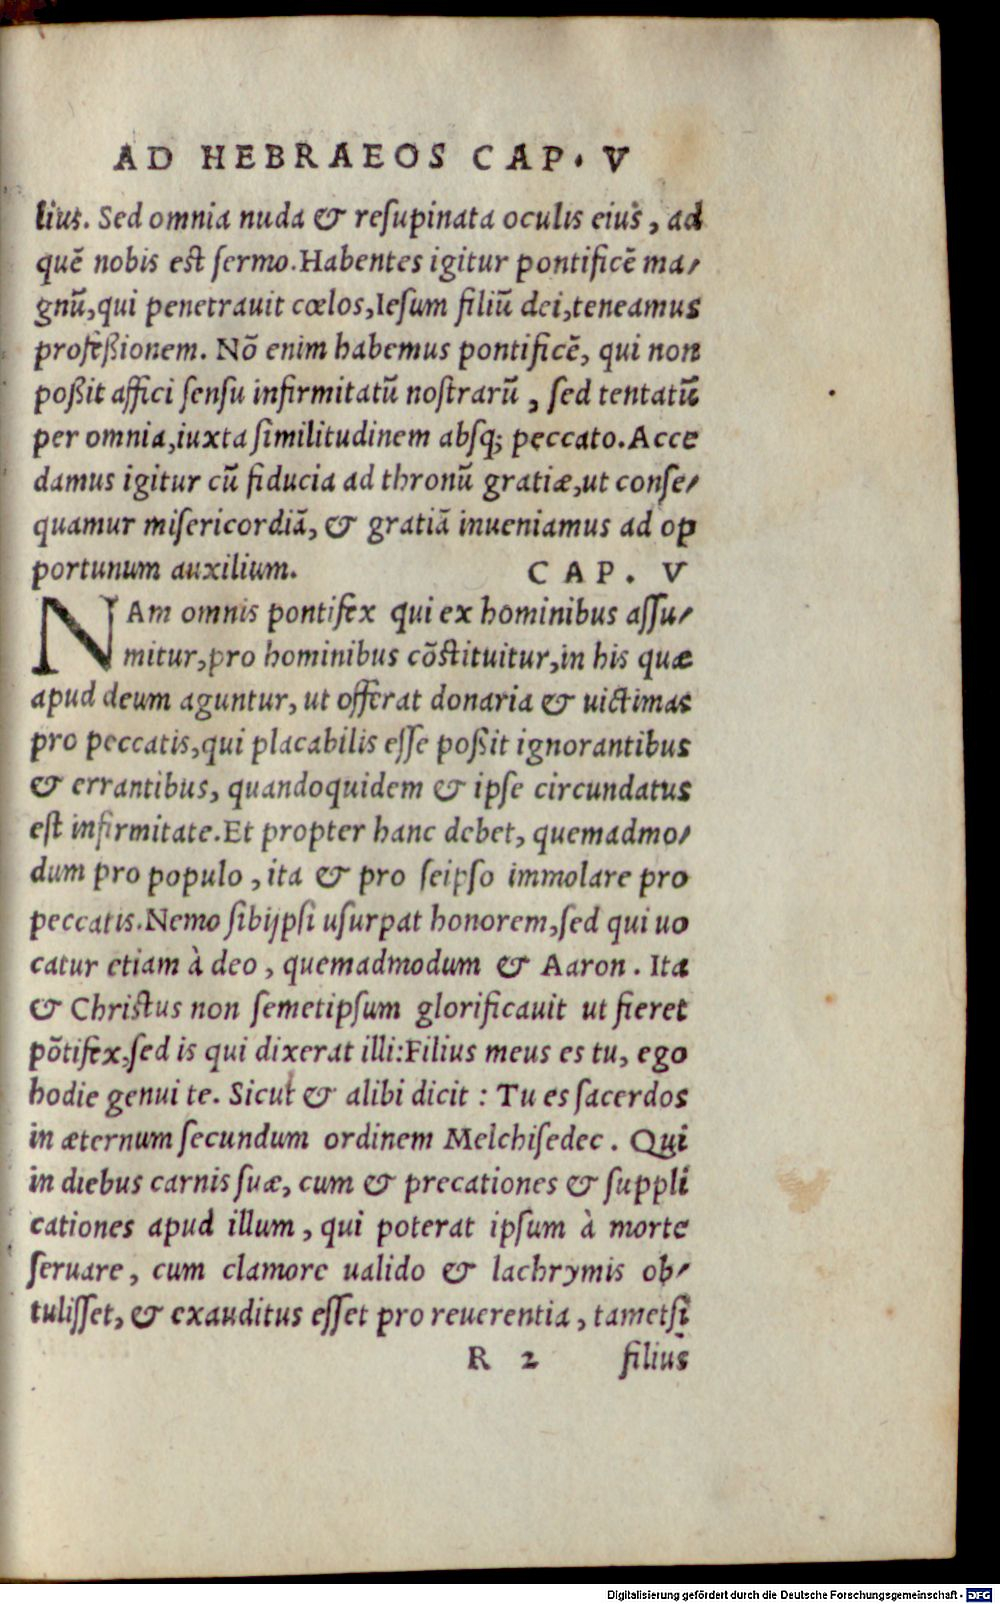 AD HEBRAEOS CAP. V
lius. Sed omnia nuda & resupinata oculis eius, ad
quē nobis est sermo. Habentes igitur pontificē ma/
gnū, qui penetrauit cœlos, Iesum filiū dei, teneamus
profeßionem. Nō enim habemus pontificē, qui non
poßit affici sensu infirmitatū nostrarū, sed tentatū
per omnia, iuxta similitudinem absq; peccato. Acce
damus igitur cū fiducia ad thronū gratiæ, ut conse/
quamur misericordiā, & gratiā inueniamus ad op
portunum auxilium. CAP. V
NAm omnis pontifex qui ex hominibus assu/
mitur, pro hominibus cōstituitur, in his quæ
apud deum aguntur, ut offerat donaria & uictimas
pro peccatis, qui placabilis esse poßit ignorantibus
& errantibus, quandoquidem & ipse circundatus
est infirmitate. Et propter hanc debet, quemadmo/
dum pro populo, ita & pro seipso immolare pro
peccatis. Nemo sibijpsi usurpat honorem, sed qui uo
catur etiam à deo, quemadmodum & Aaron. Ita
& Christus non semetipsum glorificauit ut fieret
pōtifex, sed is qui dixerat illi: Filius meus es tu, ego
hodie genui te. Sicut & alibi dicit : Tu es sacerdos
in æternum secundum ordinem Melchisedec. Qui
in diebus carnis suæ, cum & precationes & suppli
cationes apud illum, qui poterat ipsum à morte
seruare, cum clamore ualido & lachrymis ob/
tulisset, & exauditus esset pro reuerentia, tametsi
R 2 filius
Digitalisierung gefördert durch die Deutsche Forschungsgemeinschaft - DFG